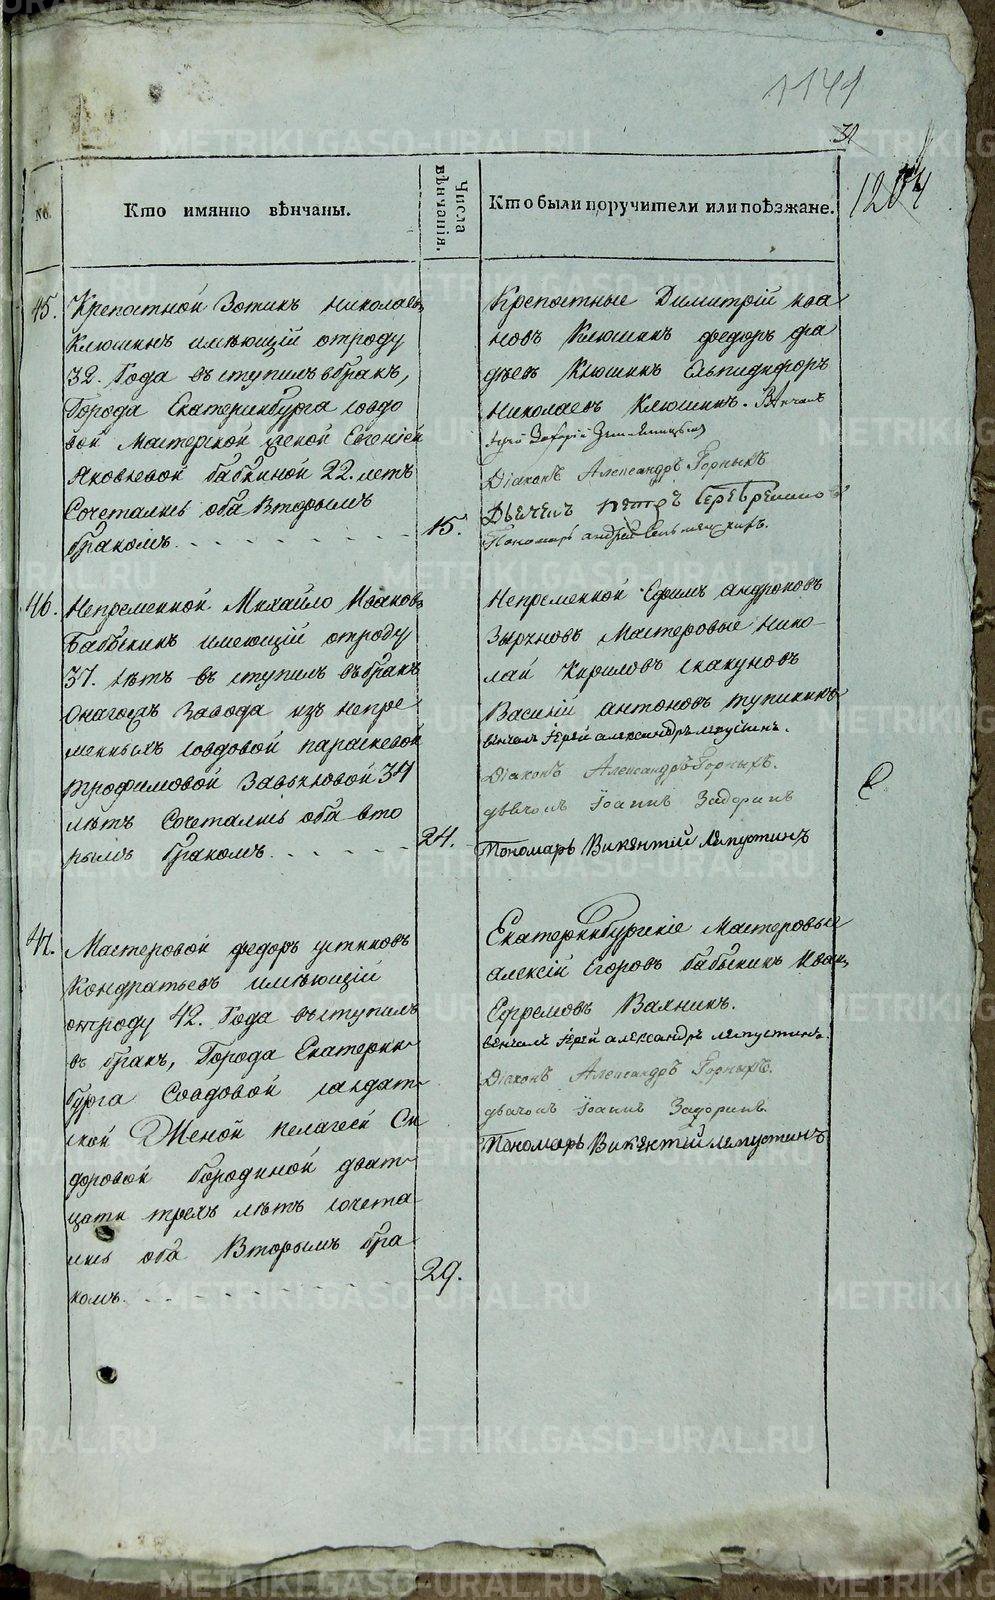 1141
32
1204
№.
Кто имянно вѣнчаны.
Числа вѣнчанія.
Кто были поручители или поѣзжане.
45.
Крепостной Зотикъ Николаевъ
Клюшинъ имѣющій отроду
32. Года вступилъ вбракъ,
Города Екатеринбурга совдо
вой Мастерской женой Евгеніей
Яковлевой бабкиной 22. летъ
Сочетались оба Вторымъ
бракомъ.
15.
Крепостные Димитрій Ива
новъ Клюшинъ федоръ фа
дѣевъ Клюшинъ Ельпидифоръ
Николаевъ Клюшинъ. Вѣнчалъ
Діаконъ Александръ Горныхъ
Дьячекъ Петръ Серебрениковъ
Пономарь андрей
46.
Непременной Михайло Ивановъ
Бабыкинъ имеющій отроду
37. лѣтъ вступилъ въбракъ
Онагожъ Завода изъ непре
менныхъ совдовой параскевой
трофимовой Завьяловой 34
лѣтъ Сочетались оба вто
рымъ бракомъ.
24.
Непременной Ефимъ андроновъ
Зыряновъ Мастеровые Нико-
лай Кириловъ скакуновъ
Василій антоновъ тупикинъ
вѣнчалъ Іерей александръ лепустинъ.
Діаконъ Александръ Горныхъ.
дьячекъ Іоаннъ Задоринъ
Пономарь Викентій Лепустинъ
47.
Мастеровой федоръ устиновъ
Кондратьевъ имѣющій
отроду 42. Года вступилъ
въ бракъ, Города Екатерин
бурга Совдовой салдат
ской Женой пелагеей Си
доровой бородиной дват
цати трехъ лѣтъ сочета
лись оба Вторымъ бра
комъ.
29.
Екатеринбургскіе Мастеровые
алексій Егоровъ бабыкинъ Иванъ
Ефремовъ Валникъ.
вѣнчалъ Іерей александръ лепустинъ.
Діаконъ Александръ Горныхъ.
дьячекъ Іоаннъ Задоринъ
Пономарь Викентій Лепустинъ